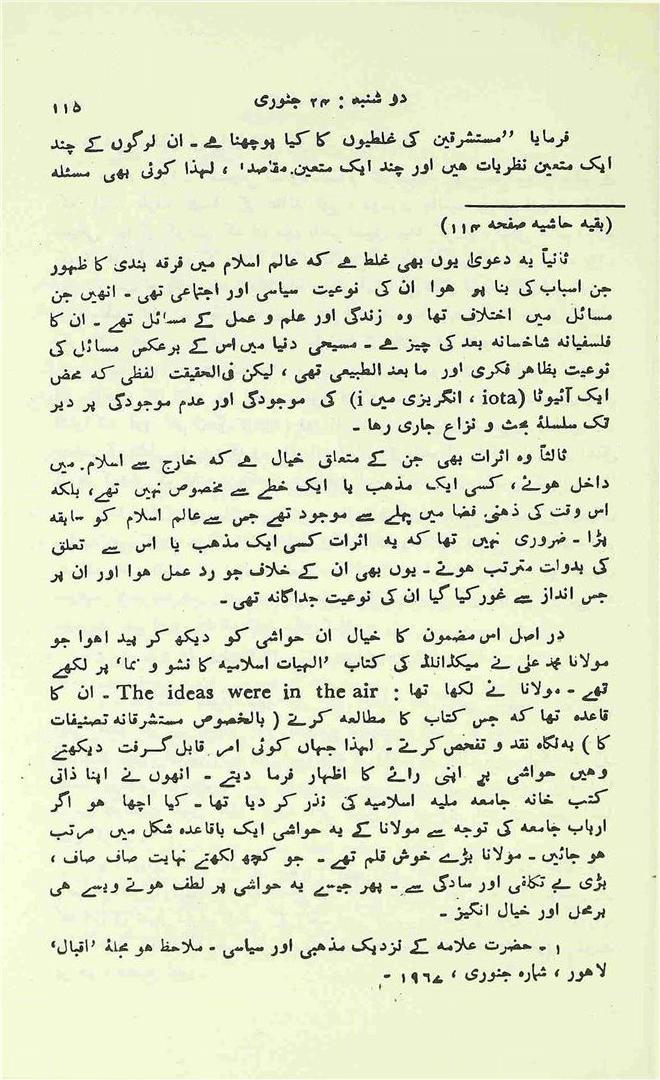 دو شنبہ : ۲۴ جنوری
۱۱۵
فرمایا ”مستشرقین کی غلطیوں کا کیا پوچھنا ہے ۔ ان لوگوں کے چند
ایک متعین نظریات ہیں اور چند ایک متعین مقاصد¹ ، لہذا کوئی بھی مسئلہ
(بقیہ حاشیہ صفحہ ۱۱۴)
ثانیاً یہ دعویٰ یوں بھی غلط ہے کہ عالم اسلام میں فرقہ بندی کا ظہور
جن اسباب کی بنا پر ہوا ان کی نوعیت سیاسی اور اجتماعی تھی ۔ انھیں جن
مسائل میں اختلاف تھا وہ زندگی اور علم و عمل کے مسائل تھے ۔ ان کا
فلسفیانہ شاخسانہ بعد کی چیز ہے ۔ مسیحی دنیا میں اس کے برعکس مسائل کی
نوعیت بظاہر فکری اور ما بعد الطبیعی تھی ، لیکن فی الحقیقت لفظی کہ محض
ایک آئیوٹا (iota ، انگریزی میں i) کی موجودگی اور عدم موجودگی پر دیر
تک سلسلۂ بحث و نزاع جاری رہا ۔
ثالثاً وہ اثرات بھی جن کے متعلق خیال ہے کہ خارج سے اسلام میں
داخل ہوئے ، کسی ایک مذہب یا ایک خطے سے مخصوص نہیں تھے ، بلکہ
اس وقت کی ذہنی فضا میں پہلے سے موجود تھے جس سے عالم اسلام کو سابقہ
پڑا ۔ ضروری نہیں تھا کہ یہ اثرات کسی ایک مذہب یا اس سے تعلق
کی بدولت مترتب ہوتے ۔ یوں بھی ان کے خلاف جو رد عمل ہوا اور ان پر
جس انداز سے غور کیا گیا ان کی نوعیت جداگانہ تھی ۔
در اصل اس مضمون کا خیال ان حواشی کو دیکھ کر پیدا ہوا جو
مولانا محمد علی نے میکڈانلڈ کی کتاب ’الہیات اسلامیہ کا نشو و نما‘ پر لکھے
تھے ۔ مولانا نے لکھا تھا : The ideas were in the air ۔ ان کا
قاعدہ تھا کہ جس کتاب کا مطالعہ کرتے ( بالخصوص مستشرقانہ تصنیفات
کا ) بہ نگاہ نقد و تفحص کرتے ۔ لہذا جہاں کوئی امر قابل گرفت دیکھتے
وہیں حواشی پر اپنی رائے کا اظہار فرما دیتے ۔ انھوں نے اپنا ذاتی
کتب خانہ جامعہ ملیہ اسلامیہ کی نذر کر دیا تھا ۔ کیا اچھا ہو اگر
ارباب جامعہ کی توجہ سے مولانا کے یہ حواشی ایک باقاعدہ شکل میں مرتب
ہو جائیں ۔ مولانا بڑے خوش قلم تھے ۔ جو کچھ لکھتے نہایت صاف صاف ،
بڑی بے تکلفی اور سادگی سے ۔ پھر جیسے یہ حواشی پر لطف ہوتے ویسے ہی
برمحل اور خیال انگیز ۔
۱ ۔ حضرت علامہ کے نزدیک مذہبی اور سیاسی ۔ ملاحظہ ہو مجلہ ’اقبال‘
لاہور ، شمارہ جنوری ، ۱۹۶۷ ۔